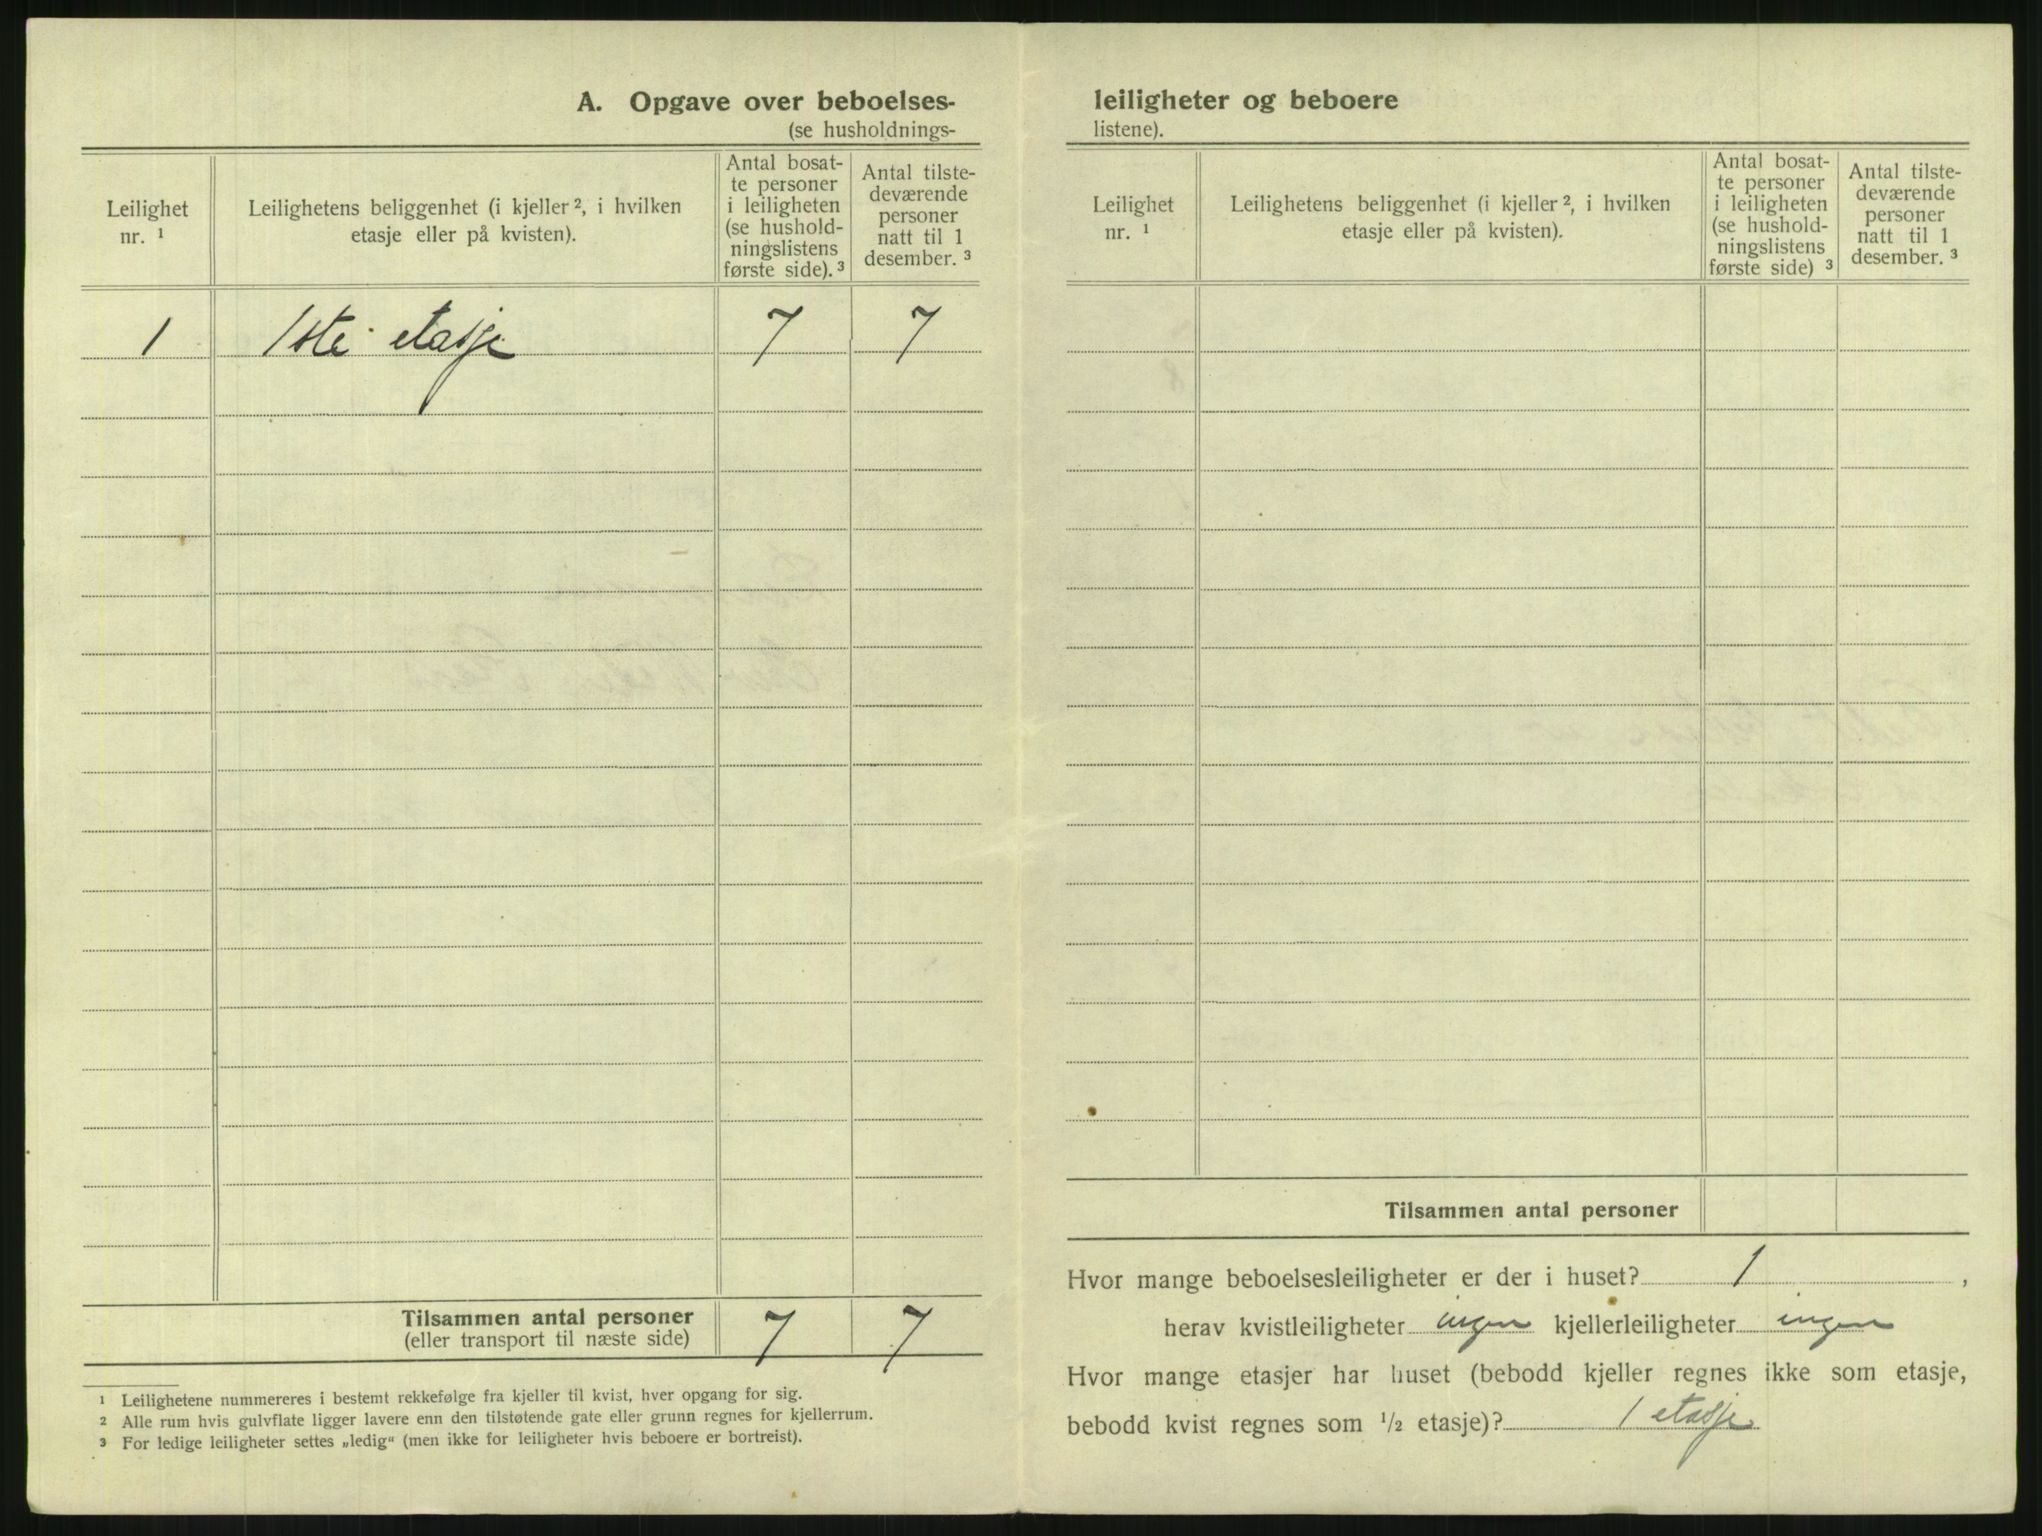 A. Opgave over beboelses-
(se husholdnings-
Leilighet nr. ¹
Leilighetens beliggenhet (i kjeller ², i hvilken
etasje eller på kvisten).
Antal bosat-
te personer
i leiligheten
(se hushold-
ningslistens
første side). ³
Antal tilste-
deværende
personer
natt til 1
desember. ³
1 1ste etasje 7 7
Tilsammen antal personer 7 7
(eller transport til næste side)
¹ Leilighetene nummereres i bestemt rekkefølge fra kjeller til kvist, hver opgang for sig.
² Alle rum hvis gulvflate ligger lavere enn den tilstøtende gate eller grunn regnes for kjellerrum.
³ For ledige leiligheter settes „ledig“ (men ikke for leiligheter hvis beboere er bortreist).
leiligheter og beboere
listene).
Leilighet
nr. ¹
Leilighetens beliggenhet (i kjeller ², i hvilken
etasje eller på kvisten).
Antal bosat-
te personer
i leiligheten
(se hushold-
ningslistens
første side) ³
Antal tilste-
deværende
personer
natt til 1
desember. ³
Tilsammen antal personer
Hvor mange beboelsesleiligheter er der i huset? 1 ,
herav kvistleiligheter ingen kjellerleiligheter ingen
Hvor mange etasjer har huset (bebodd kjeller regnes ikke som etasje,
bebodd kvist regnes som ½ etasje)? 1 etasje